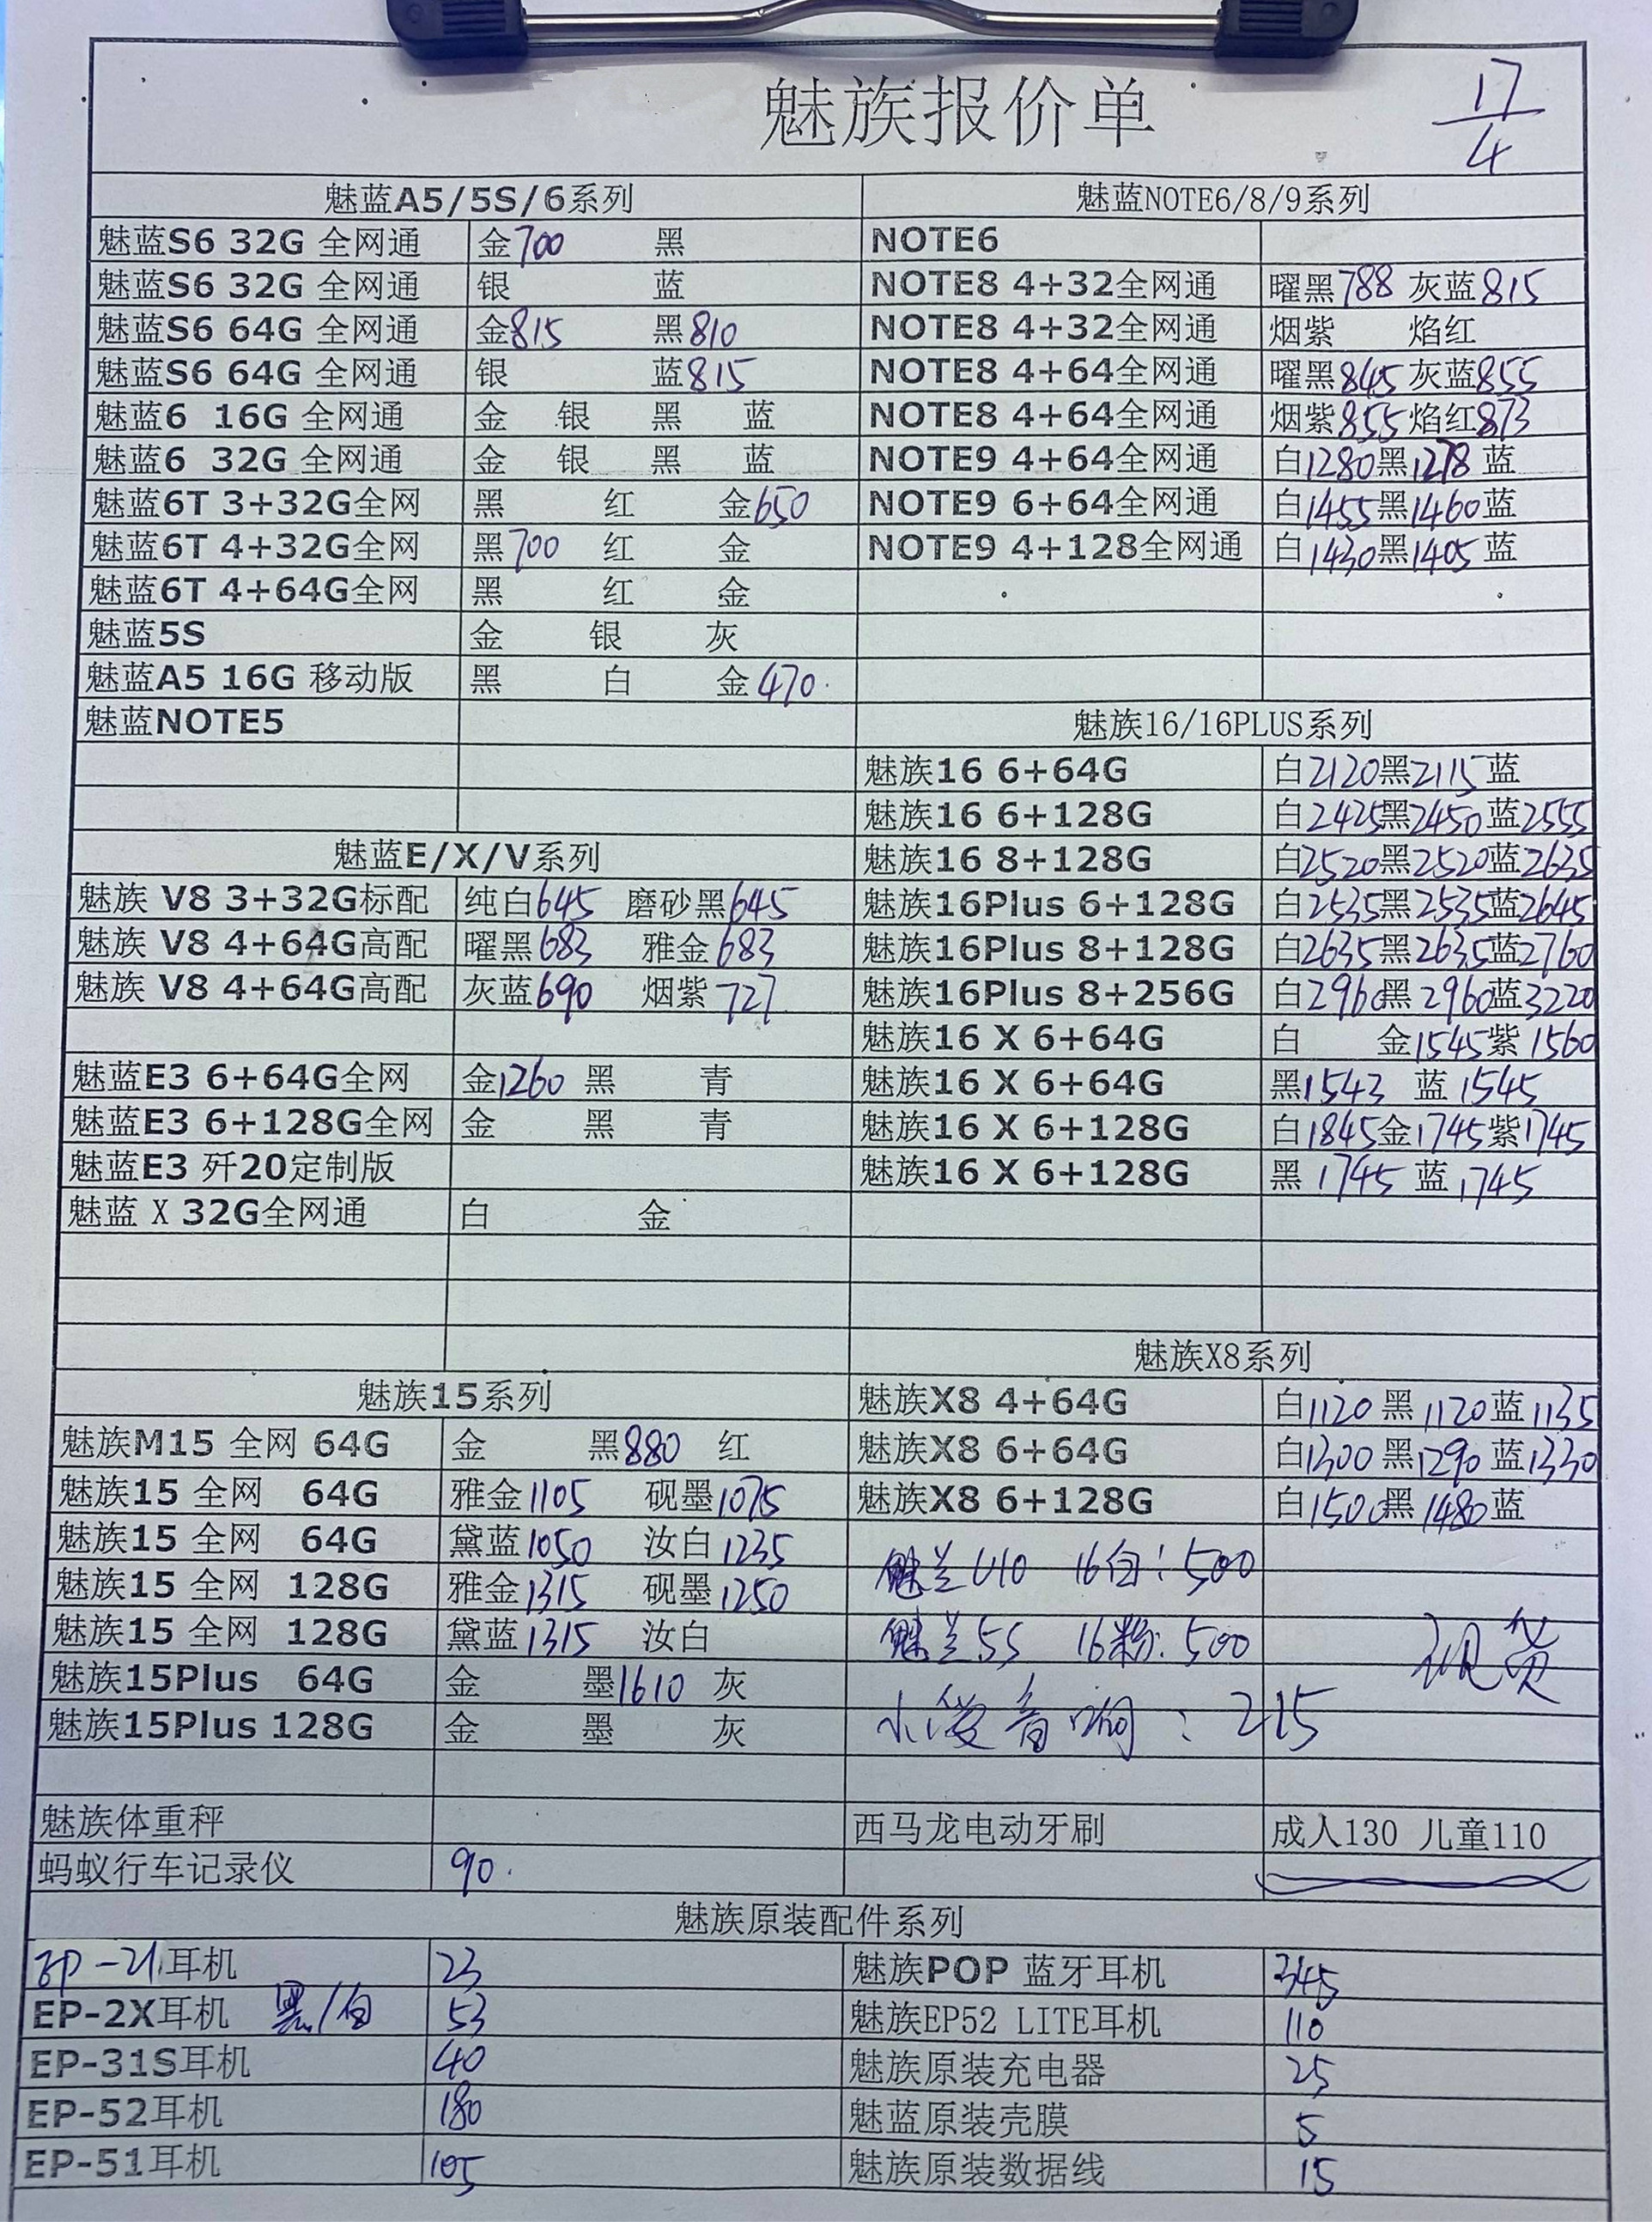 魅族报价单
17/4
魅蓝A5/5S/6系列
魅蓝S6 32G 全网通 金700 黑
魅蓝S6 32G 全网通 银 蓝
魅蓝S6 64G 全网通 金815 黑810
魅蓝S6 64G 全网通 银 蓝815
魅蓝6 16G 全网通 金 银 黑 蓝
魅蓝6 32G 全网通 金 银 黑 蓝
魅蓝6T 3+32G全网 黑 红 金650
魅蓝6T 4+32G全网 黑700 红 金
魅蓝6T 4+64G全网 黑 红 金
魅蓝5S 金 银 灰
魅蓝A5 16G 移动版 黑 白 金470
魅蓝NOTE5
魅蓝E/X/V系列
魅族 V8 3+32G标配 纯白645 磨砂黑645
魅族 V8 4+64G高配 曜黑683 雅金683
魅族 V8 4+64G高配 灰蓝690 烟紫727
魅蓝E3 6+64G全网 金1260 黑 青
魅蓝E3 6+128G全网 金 黑 青
魅蓝E3 歼20定制版
魅蓝 X 32G全网通 白 金
魅族15系列
魅族M15 全网 64G 金 黑880 红
魅族15 全网 64G 雅金1105 砚墨1075
魅族15 全网 64G 黛蓝1050 汝白1235
魅族15 全网 128G 雅金1315 砚墨1250
魅族15 全网 128G 黛蓝1315 汝白
魅族15Plus 64G 金 墨1610 灰
魅族15Plus 128G 金 墨 灰
魅族体重秤
蚂蚁行车记录仪 90
魅蓝NOTE6/8/9系列
NOTE6
NOTE8 4+32全网通 曜黑788 灰蓝815
NOTE8 4+32全网通 烟紫 焰红
NOTE8 4+64全网通 曜黑845 灰蓝855
NOTE8 4+64全网通 烟紫855 焰红873
NOTE9 4+64全网通 白1280 黑1278 蓝
NOTE9 6+64全网通 白1455 黑1460 蓝
NOTE9 4+128全网通 白1430 黑1405 蓝
魅族16/16PLUS系列
魅族16 6+64G 白2120 黑2115 蓝
魅族16 6+128G 白2425 黑2450 蓝2555
魅族16 8+128G 白2520 黑2520 蓝2635
魅族16Plus 6+128G 白2535 黑2535 蓝2645
魅族16Plus 8+128G 白2635 黑2635 蓝2760
魅族16Plus 8+256G 白2960 黑2960 蓝3220
魅族16 X 6+64G 白 金1545 紫1560
魅族16 X 6+64G 黑1543 蓝1545
魅族16 X 6+128G 白1845 金1745 紫1745
魅族16 X 6+128G 黑1745 蓝1745
魅族X8系列
魅族X8 4+64G 白1120 黑1120 蓝1135
魅族X8 6+64G 白1300 黑1290 蓝1330
魅族X8 6+128G 白1500 黑1480 蓝
魅兰U10 16白:500
魅兰5S 16粉:500
现货
小漫音响:215
西马龙电动牙刷 成人130 儿童110
魅族原装配件系列
EP-21耳机 23
EP-2X耳机 黑/白 53
EP-31S耳机 40
EP-52耳机 180
EP-51耳机 105
魅族POP 蓝牙耳机 345
魅族EP52 LITE耳机 110
魅族原装充电器 25
魅蓝原装壳膜 5
魅族原装数据线 15